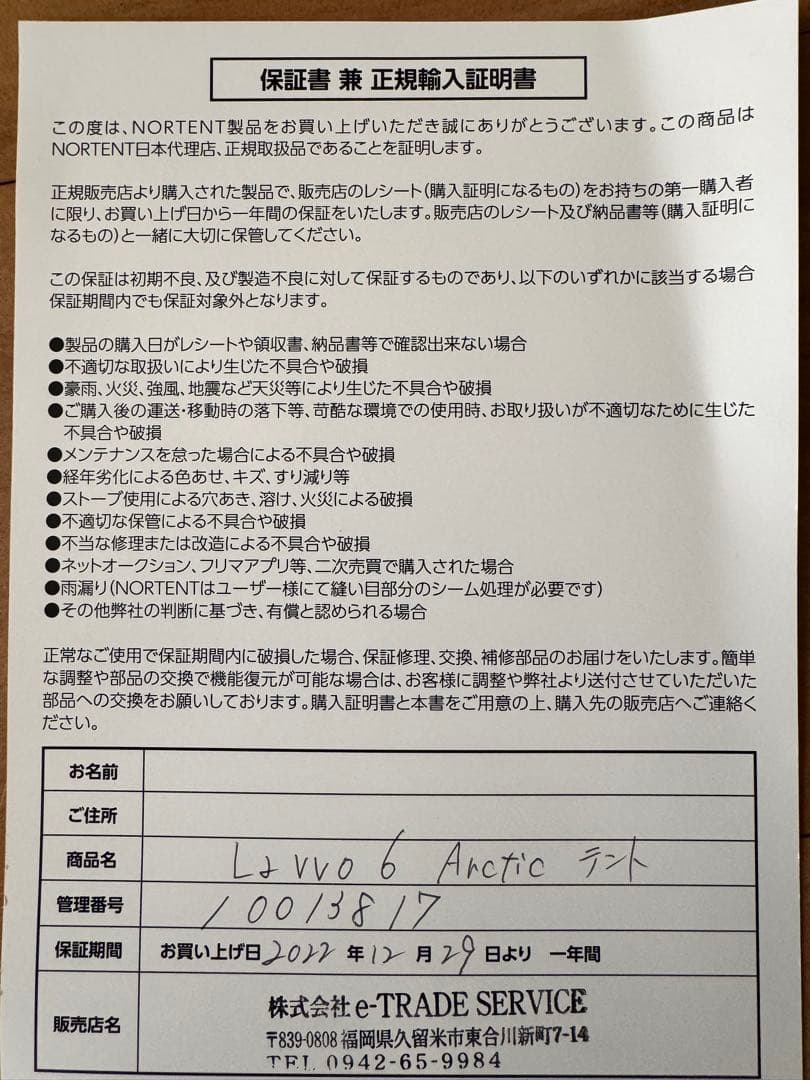 保証書 兼 正規輸入証明書
この度は、NORTENT製品をお買い上げいただき誠にありがとうございます。この商品は
NORTENT日本代理店、正規取扱品であることを証明します。
正規販売店より購入された製品で、販売店のレシート(購入証明になるもの)をお持ちの第一購入者
に限り、お買い上げ日から一年間の保証をいたします。販売店のレシート及び納品書等(購入証明に
なるもの)と一緒に大切に保管してください。
この保証は初期不良、及び製造不良に対して保証するものであり、以下のいずれかに該当する場合
保証期間内でも保証対象外となります。
●製品の購入日がレシートや領収書、納品書等で確認出来ない場合
●不適切な取扱いにより生じた不具合や破損
●豪雨、火災、強風、地震など天災等により生じた不具合や破損
●ご購入後の運送・移動時の落下等、苛酷な環境での使用時、お取り扱いが不適切なために生じた
不具合や破損
●メンテナンスを怠った場合による不具合や破損
●経年劣化による色あせ、キズ、すり減り等
●ストーブ使用による穴あき、溶け、火災による破損
●不適切な保管による不具合や破損
●不当な修理または改造による不具合や破損
●ネットオークション、フリマアプリ等、二次売買で購入された場合
●雨漏り(NORTENTはユーザー様にて縫い目部分のシーム処理が必要です)
●その他弊社の判断に基づき、有償と認められる場合
正常なご使用で保証期間内に破損した場合、保証修理、交換、補修部品のお届けをいたします。簡単
な調整や部品の交換で機能復元が可能な場合は、お客様に調整や弊社より送付させていただいた
部品への交換をお願いしております。購入証明書と本書をご用意の上、購入先の販売店へご連絡く
ださい。
お名前
ご住所
商品名 Lavvo 6 Arctic テント
管理番号 10013817
保証期間 お買い上げ日 2022 年 12 月 29 日より 一年間
販売店名 株式会社 e-TRADE SERVICE
〒839-0808 福岡県久留米市東合川新町7-14
TEL 0942-65-9984